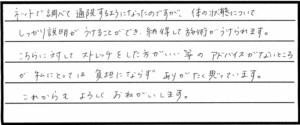 ネットで調べて通院するようになったのですが、体の状態について
しっかり説明がうけることができ、納得して施術がうけられます。
こちらに対してストレッチをした方がいい等のアドバイスがないところ
が私にとっては負担にならずありがたく思っています。
これからもよろしくお願いします。